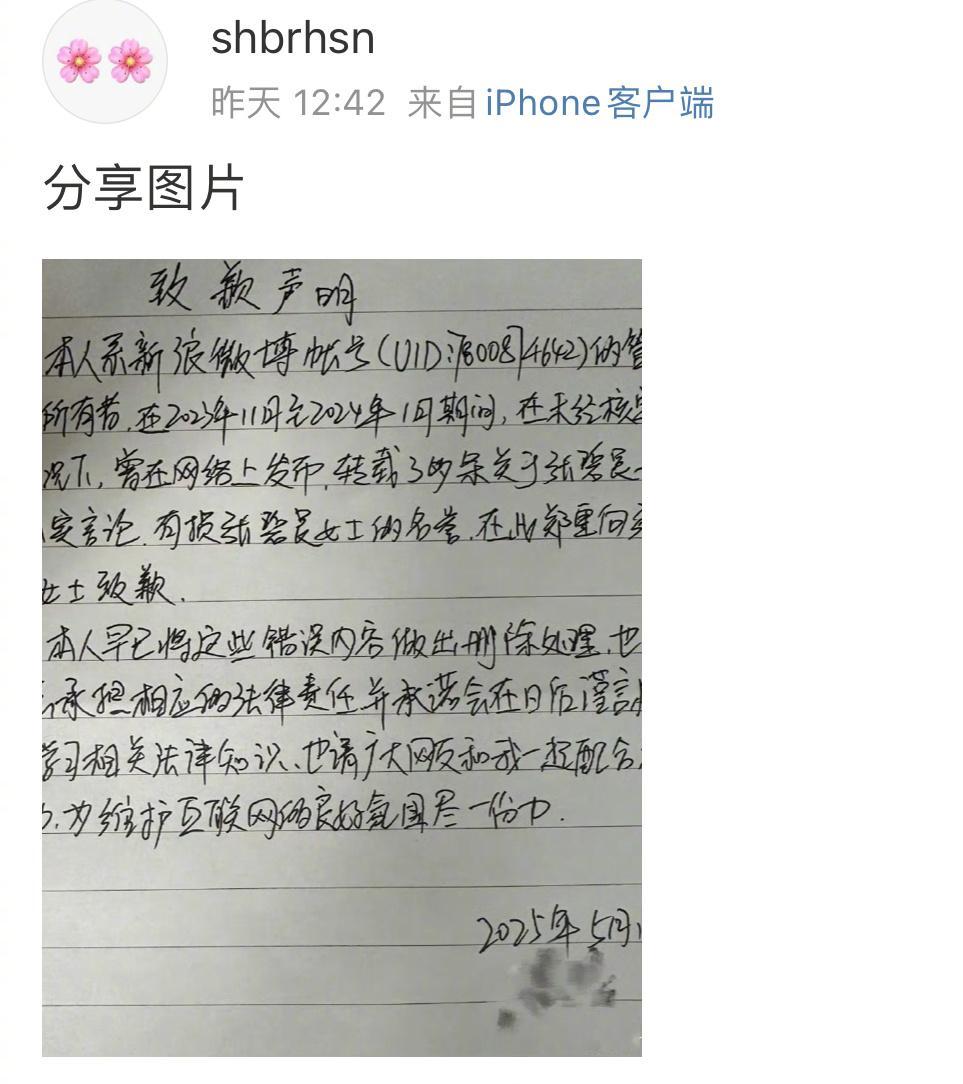 shbrhsn
昨天 12:42 来自 iPhone客户端
分享图片
致歉声明
本人系新浪微博帐号(UID:7800874642)的管
所有者,在2023年11月至2024年1月期间,在未经核实
况下,曾在网络上发布,转载了两条关于张碧晨
实言论,有损张碧晨女士的名誉,在此郑重向
女士致歉.
本人早已将这些错误内容做出删除处理,也
承担相应的法律责任并承诺会在日后谨言
学习相关法律知识、也请广大网友和我一起配合
为维护互联网的良好氛围尽一份力.
2025年5月